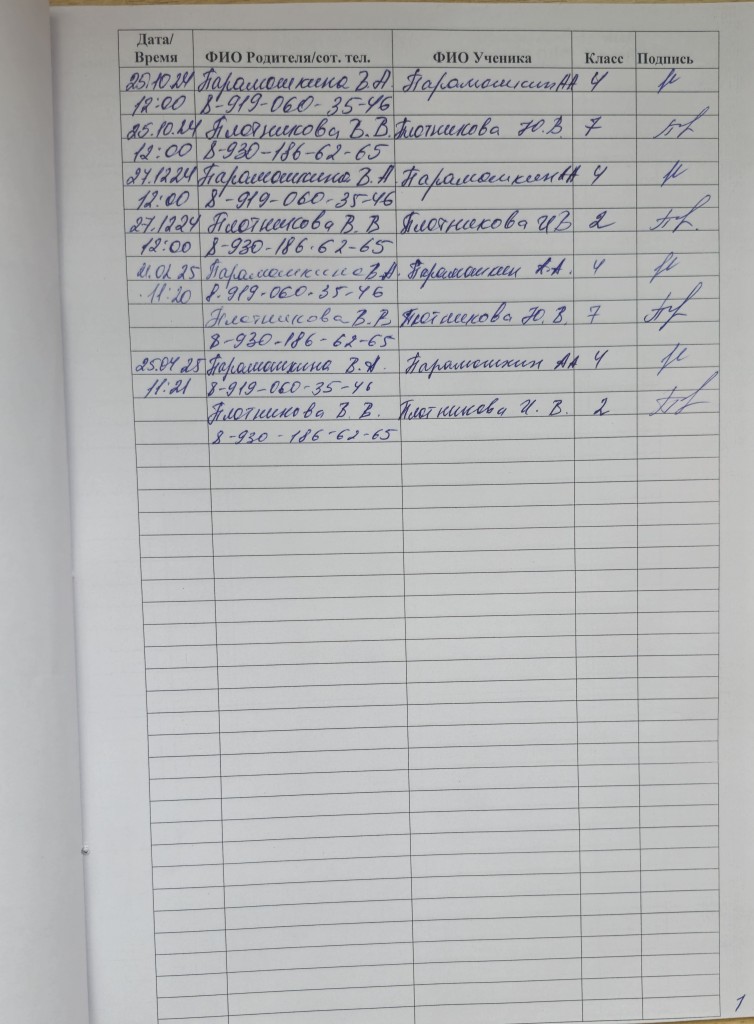 Дата/ Время ФИО Родителя/сот. тел. ФИО Ученика Класс Подпись
25.10.24 Парамошкина В.А. Парамошкин АА 4
12:00 8-919-060-35-46
25.10.24 Плотникова В.В. Плотникова Ю.В. 7
12:00 8-930-186-62-65
27.1224 Парамошкина В.А Парамошкин АА 4
12:00 8-919-060-35-46
27.1224 Плотникова В.В Плотникова И В 2
12:00 8-930-186-62-65
21.02 25 Парамошкина В.А. Парамошкин А.А. 4
11:20 8-919-060-35-46
Плотникова В.В. Плотникова Ю.В. 7
8-930-186-62-65
25.04 25 Парамошкина В.А. Парамошкин АА 4
11:21 8-919-060-35-46
Плотникова В.В. Плотникова И.В. 2
8-930-186-62-65
1